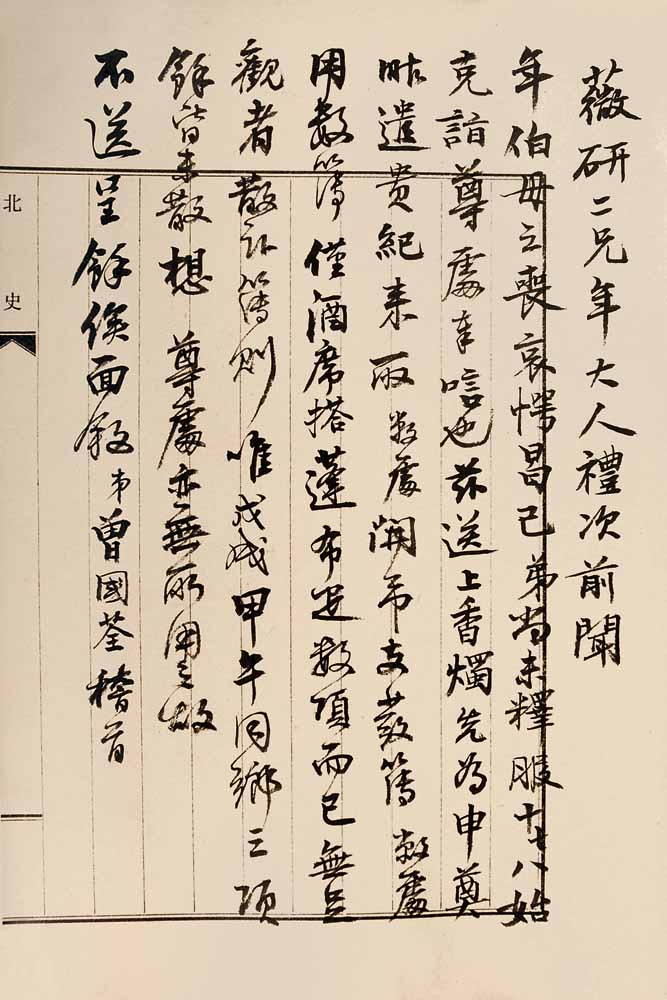 薇研二兄年大人禮次前聞
年伯母之喪哀愕曷已弟尚未釋服十七八始
克詣尊處奉唁也茲送上香燭先為申奠
昨遣貴紀來取敝處開弔支發簿敝處
用數簿僅酒席搭蓬布疋數項而已無足
觀者散訃簿則唯戊戌甲午同鄉三項
餘皆未散想尊處亦無所用之故
不送呈餘俟面敘弟曾國荃稽首
北史